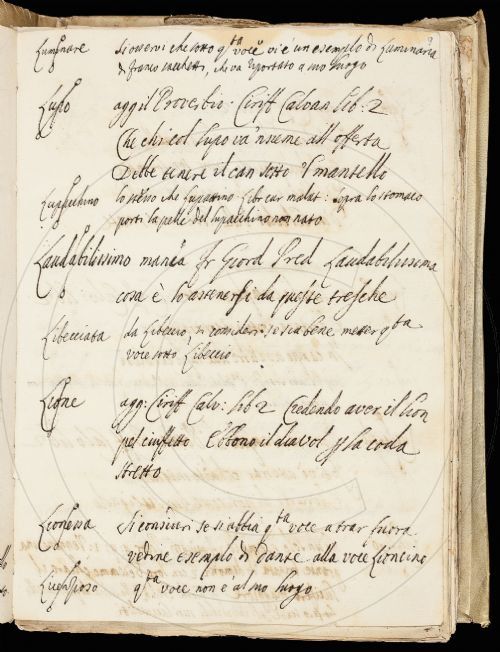 Luminare si osservi che sotto q.ta voce vi è un esempio di Luminaria
di franco sacchetti, che va riportato a suo luogo
Lupo agg il Proverbio: Ciriff Calvan lib: 2
Che chi col lupo va 'nsieme all' offerta
Debbe tenere il can sotto 'l mantello
Lupacchino lo stesso che Lupattino Libr cur malat: sopra lo stomaco
porti la pelle del lupacchino non nato
Laudabilissimo manca Fr Giord Pred Laudabilissima
cosa è lo astenersi da queste tresche
Libecciata da Libeccio, si consideri se sia bene metter q.ta
voce sotto Libeccio
Lione agg: Ciriff Calv: lib 2 Credendo aver il lion
pel ciuffetto Ebbono il diavol p la coda
stretto
Lionessa si consideri se si abbia q.ta voce a trar fuora
vedine esempio di Dante alla voce Lioncino
q.ta voce non è al suo luogo